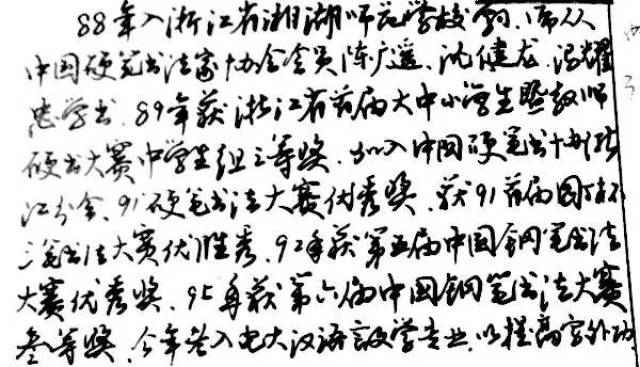 88年入浙江省湘湖师范学校学习,师从
中国硬笔书法家协会会员陈广遥、沈健龙、冯耀
忠学书.89年获浙江省首届大中小学生暨教师
硬书大赛中学生组三等奖.加入中国硬笔书协浙
江分会.91硬笔书法大赛优秀奖.获91首届国际
三笔书法大赛优胜秀.92年获第五届中国钢笔书法
大赛优秀奖.95年获第六届中国钢笔书法大赛
叁等奖.今年考入电大汉语言文学专业.以提高字外功